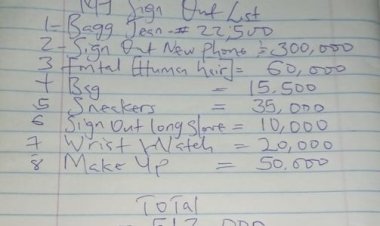 My Sign Out List
1- Bagg Jean - # 22,500
2- Sign Out New Phone = 300,000
3 Frontal [Human hair] = 60,000
4 Bag = 15.500
5 Sneakers = 35,000
6 Sign Out long Sleeve = 10,000
7 Wrist Watch = 20,000
8 Make Up = 50.000
TOTAL
= 513,000